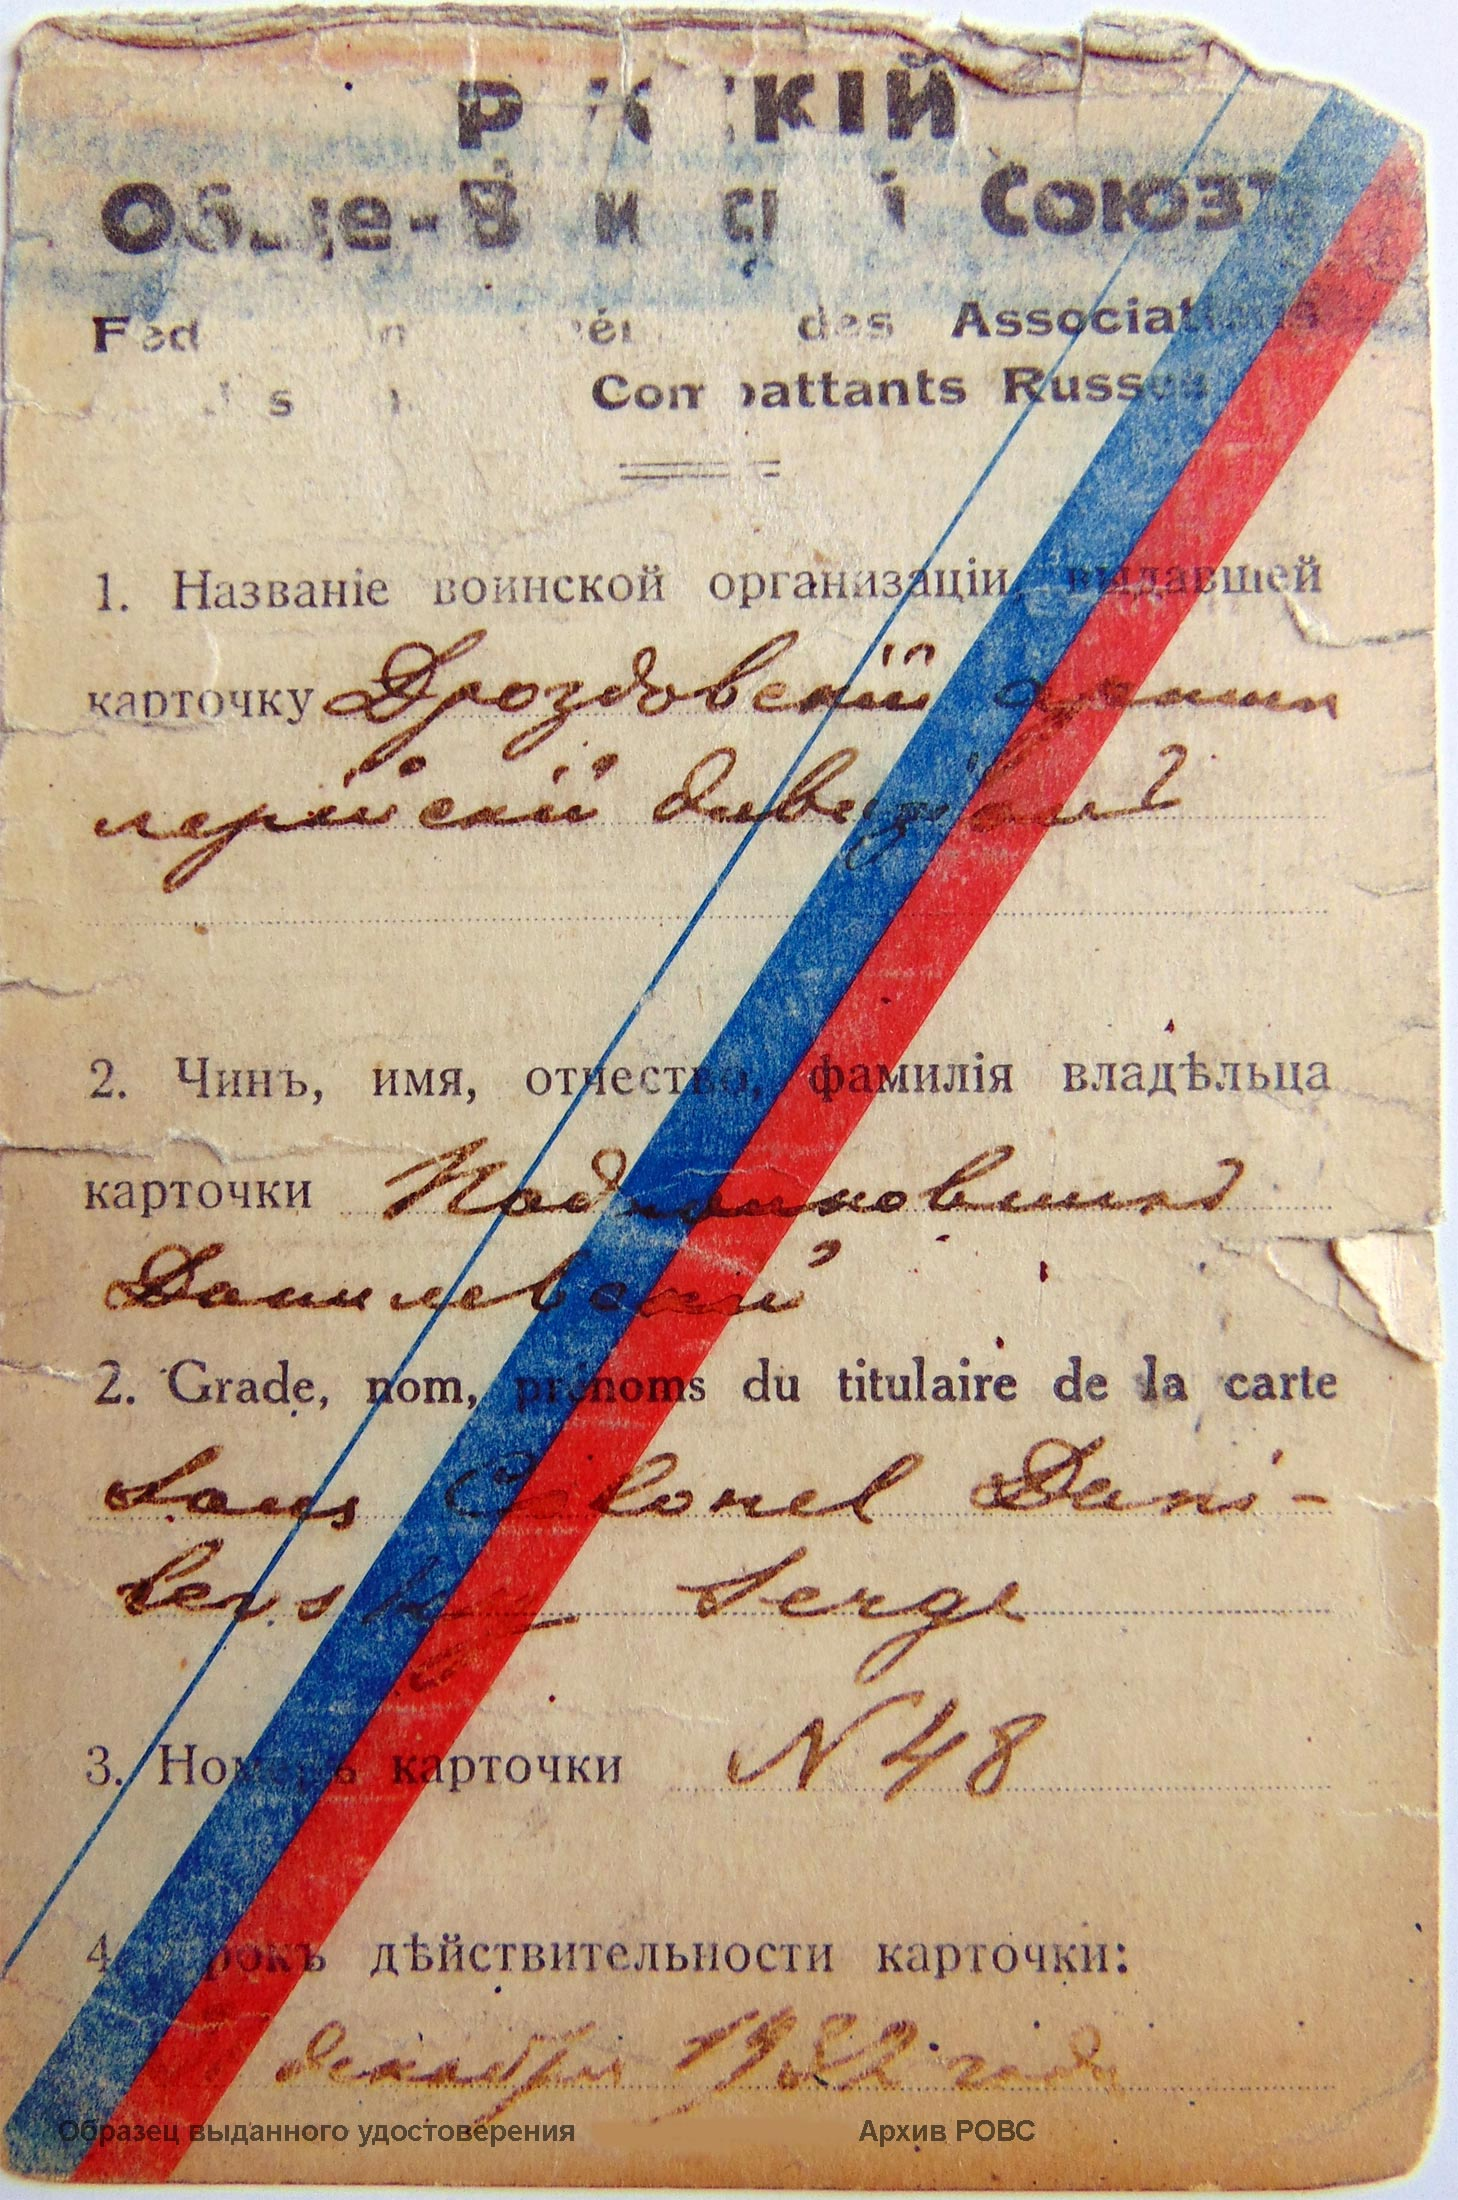 Союзъ
des Associations
Combattants Russes
1. Названіе воинской организаціи, выдавшей
карточку Дроздовскій артил
лерійскій дивизіонъ
2. Чинъ, имя, отчество, фамилія владѣльца
карточки Подполковникъ
Данилевскій
2. Grade, nom, prénoms du titulaire de la carte
Sous Colonel Dani-
levsky Serge
3. Номеръ карточки N 48
4. Срокъ дѣйствительности карточки:
декабря 1932 года
Образец выданного удостоверения Архив РОВС